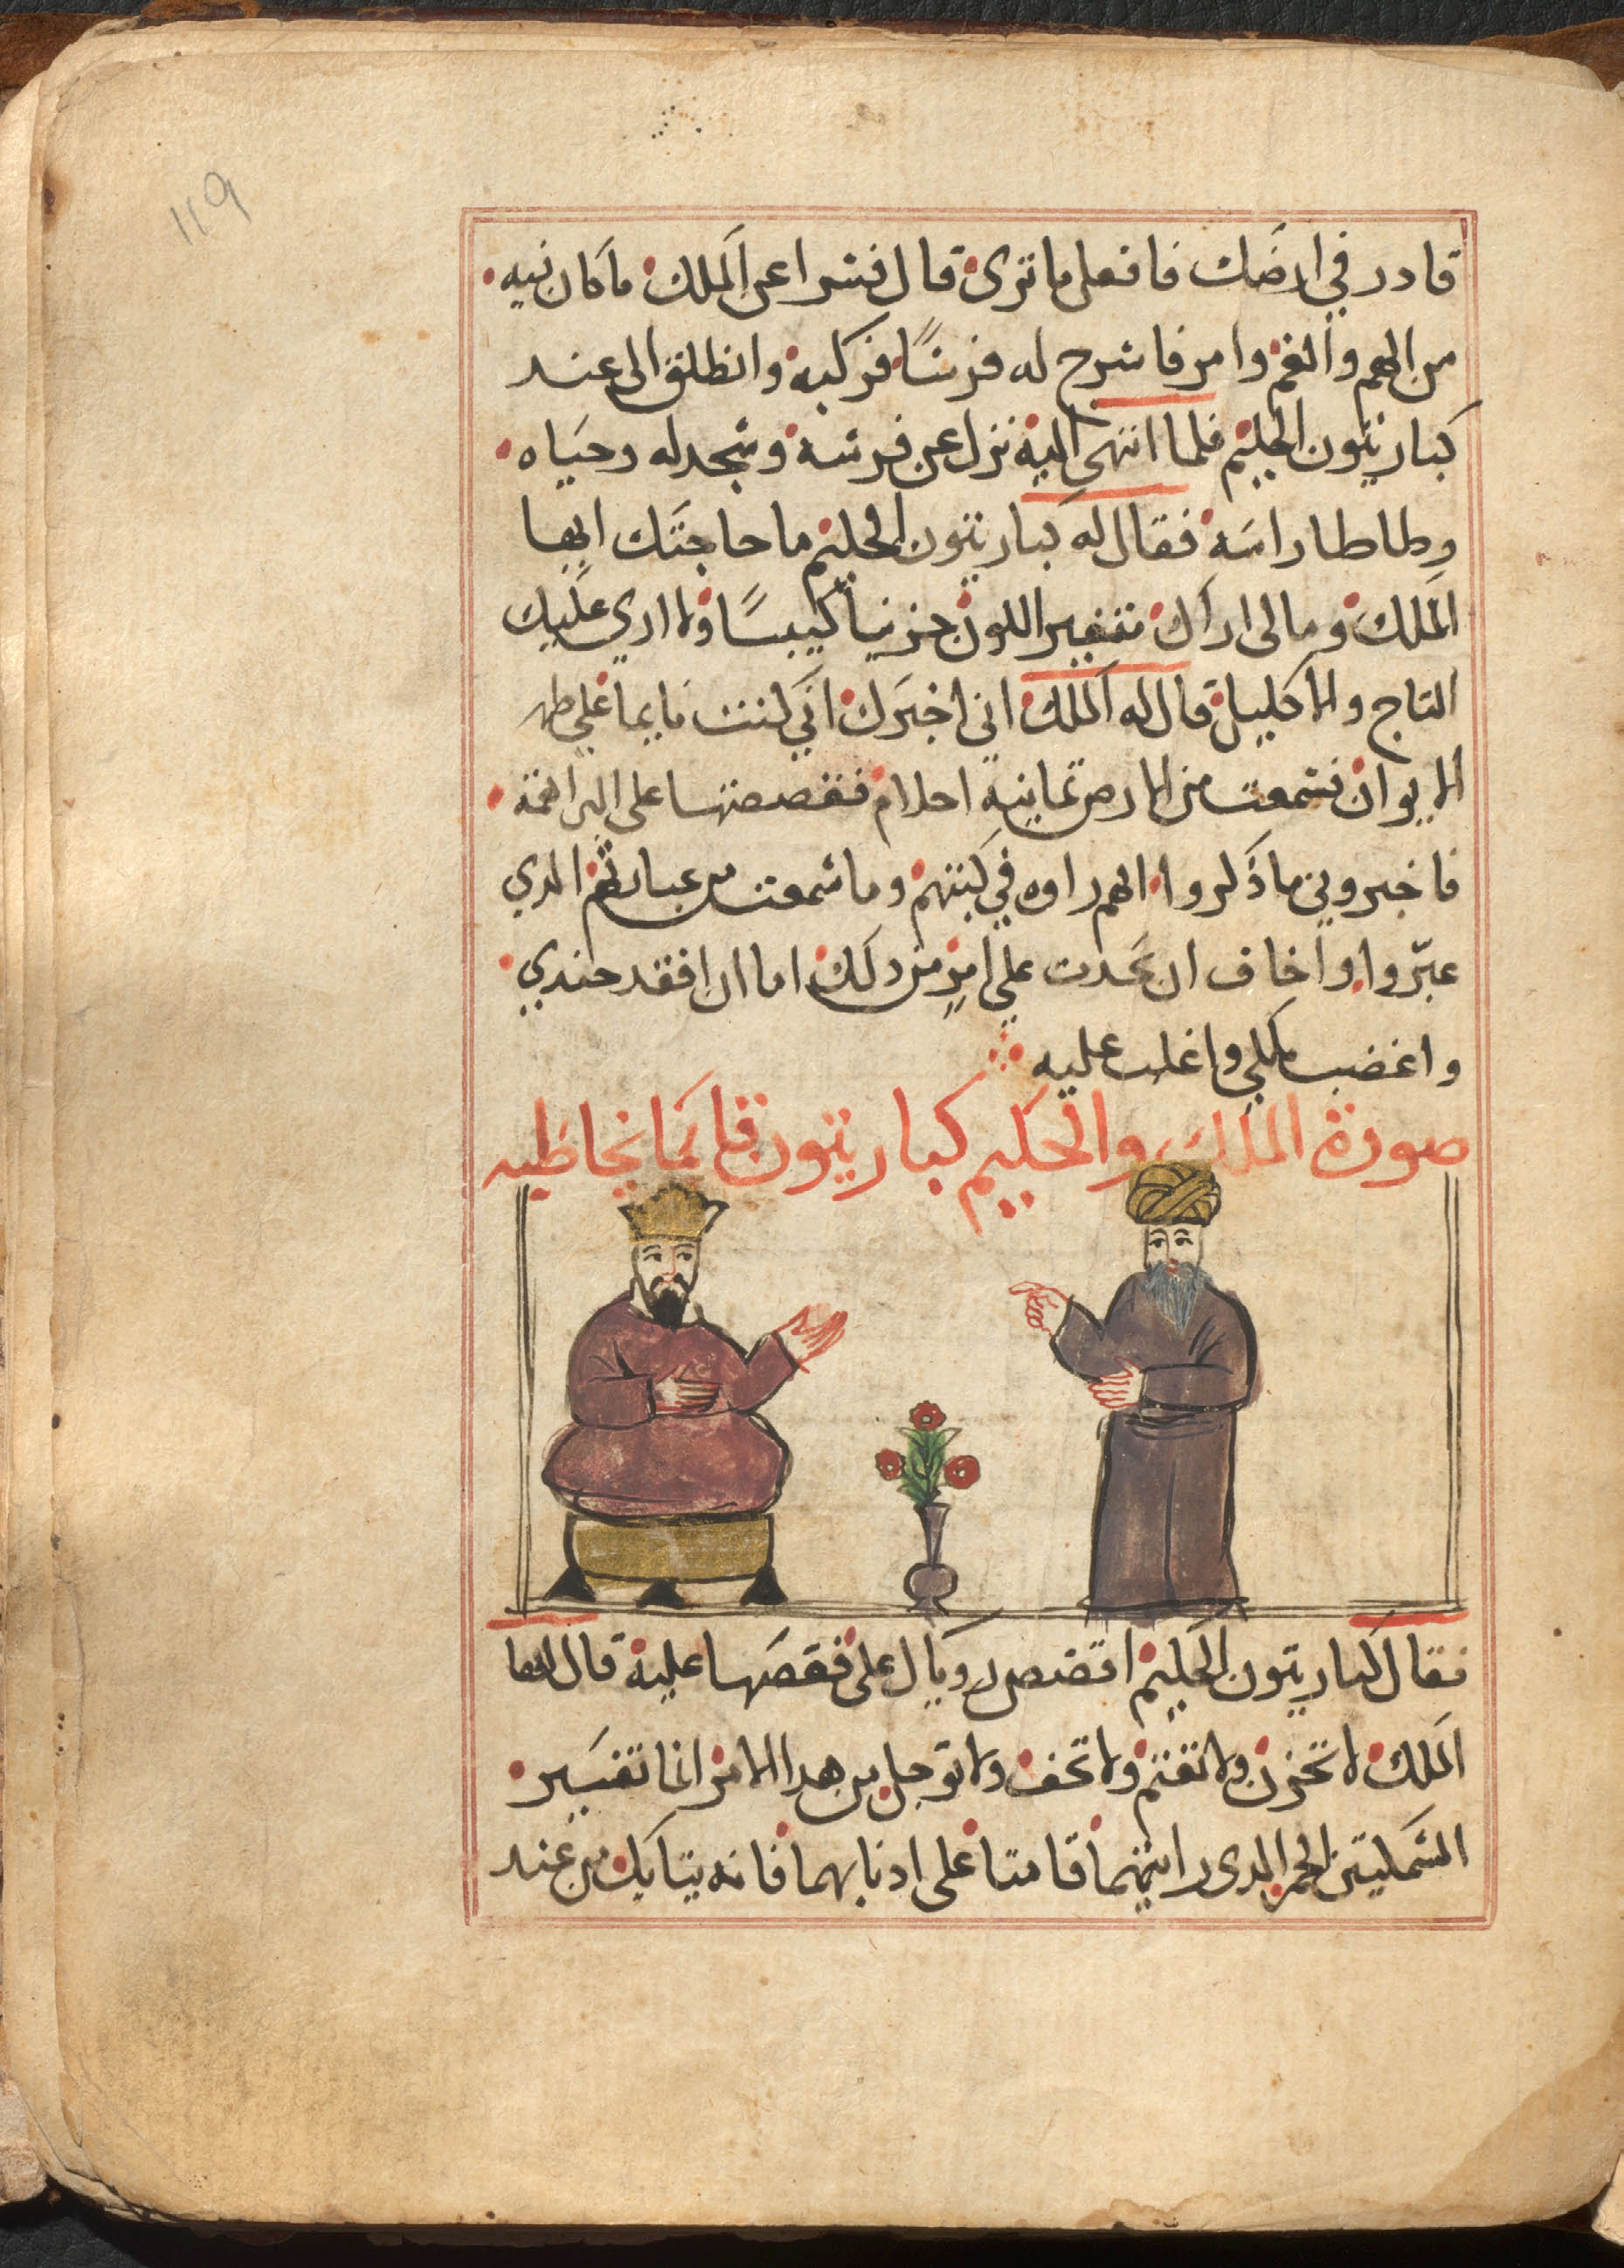 119
قادر في ارضك فافعل ما ترى قال فسرا عن الملك ما كان فيه
من الهم والغم وامر فاسرج له فرسًا فركبه وانطلق الى عند
كباريتون الحكيم فلما انتهى اليه نزل عن فرسه وسجد له وحياه
وطاطا راسه فقال له كباريتون الحكيم ما حاجتك ايها
الملك وما لى اراك متغير اللون حزينا كيبسًا ولا ارى عليك
التاج والاكليل قال له الملك اني اخبرك اني كنت نايما علي ظهر
الايوان فسمعت من الارض تمانية احلام فقصصتها على البراهمة
فاخبروني ما ذكروا انهم راوه في كتبهم وما سمعت من عبارتهم الدي
عبّروا واخاف ان يحدت علي امر من دلك اما ان افقد جندي
واغضب ملكي واغلب عليه
صورة الملك والحكيم كباريتون قايمًا يخاطبه
فقال كباريتون الحكيم اقصص روياك على فقصها عليه قال ايها
الملك لا تحزن ولا تغتم ولا تخف ولا توجل من هدا الامر انما تفسير
السمكيتين الحمر الدى رايتهما قامتا على ادنابهما فانه يتايك من عند